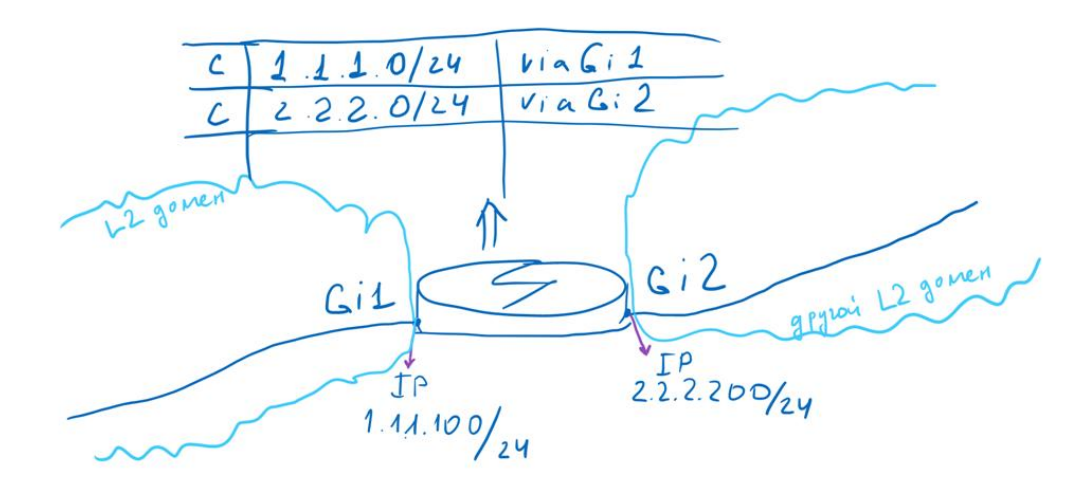 C 1.1.1.0/24 via Gi1
C 2.2.2.0/24 via Gi2
L2 домен
Gi1
Gi2
другой L2 домен
IP
1.1.1.100/24
IP
2.2.2.200/24